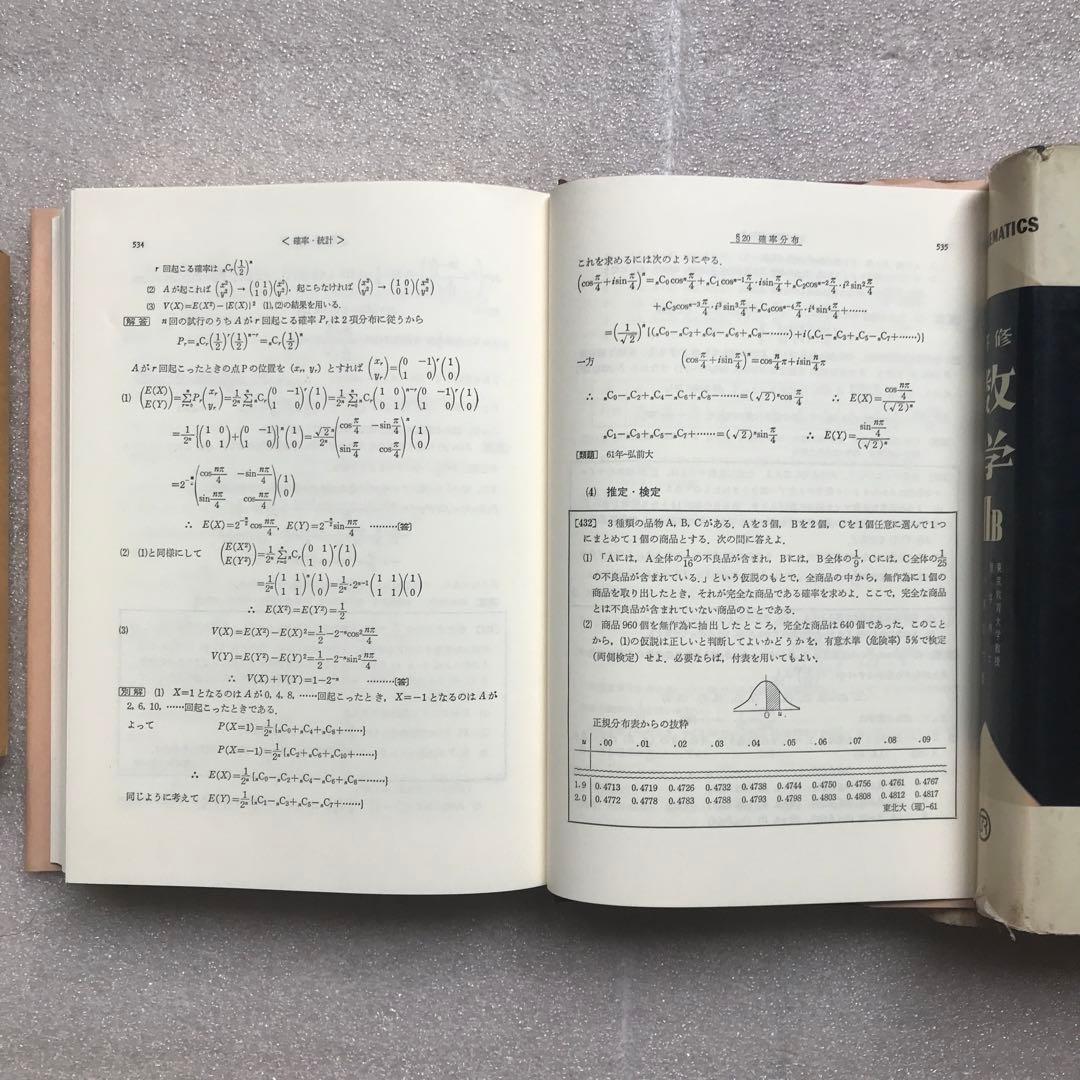 534
< 確率・統計 >
r 回起こる確率は ₙCᵣ(1/2)ⁿ
(2) A が起これば (x²/y²) → (0 1/1 0)(x²/y²), 起こらなければ (x²/y²) → (1 0/0 1)(x²/y²)
(3) V(X)=E(X²)−{E(X)}² (1), (2)の結果を用いる.
[解答] n 回の試行のうち A が r 回起こる確率 Pᵣ は2項分布に従うから
Pᵣ=ₙCᵣ(1/2)ʳ(1/2)ⁿ⁻ʳ=ₙCᵣ(1/2)ⁿ
A が r 回起こったときの点Pの位置を (xᵣ, yᵣ) とすれば (xᵣ/yᵣ)=(0 −1/1 0)ʳ(1/0)
(1) (E(X)/E(Y))=Σᵣ₌₀ⁿPᵣ(xᵣ/yᵣ)=1/2ⁿ Σᵣ₌₀ⁿ ₙCᵣ(0 −1/1 0)ʳ(1/0)=1/2ⁿ Σᵣ₌₀ⁿ ₙCᵣ(1 0/0 1)ⁿ⁻ʳ(0 −1/1 0)ʳ(1/0)
=1/2ⁿ{(1 0/0 1)+(0 −1/1 0)}ⁿ(1/0)=√2ⁿ/2ⁿ(cos π/4 −sin π/4/sin π/4 cos π/4)ⁿ(1/0)
=2^(−n/2)(cos nπ/4 −sin nπ/4/sin nπ/4 cos nπ/4)(1/0)
∴ E(X)=2^(−n/2)cos nπ/4, E(Y)=2^(−n/2)sin nπ/4 ………[答]
(2) (1)と同様にして (E(X²)/E(Y²))=1/2ⁿ Σᵣ₌₀ⁿ ₙCᵣ(0 1/1 0)ʳ(1/0)
=1/2ⁿ(1 1/1 1)ⁿ(1/0)=1/2ⁿ·2ⁿ⁻¹(1 1/1 1)(1/0)
∴ E(X²)=E(Y²)=1/2
(3) V(X)=E(X²)−E(X)²=1/2−2⁻ⁿcos² nπ/4
V(Y)=E(Y²)−E(Y)²=1/2−2⁻ⁿsin² nπ/4
∴ V(X)+V(Y)=1−2⁻ⁿ ………[答]
[別解] (1) X=1 となるのは A が 0, 4, 8, ……回起こったとき, X=−1 となるのは A が
2, 6, 10, ……回起こったときである.
よって P(X=1)=1/2ⁿ{ₙC₀+ₙC₄+ₙC₈+……}
P(X=−1)=1/2ⁿ{ₙC₂+ₙC₆+ₙC₁₀+……}
∴ E(X)=1/2ⁿ{ₙC₀−ₙC₂+ₙC₄−ₙC₆+ₙC₈−……}
同じように考えて E(Y)=1/2ⁿ{ₙC₁−ₙC₃+ₙC₅−ₙC₇+……}
§20 確率分布
535
これを求めるには次のようにやる.
(cos π/4+i sin π/4)ⁿ=ₙC₀cosⁿ π/4+ₙC₁cosⁿ⁻¹ π/4·i sin π/4+ₙC₂cosⁿ⁻² π/4·i² sin² π/4
+ₙC₃cosⁿ⁻³ π/4·i³ sin³ π/4+ₙC₄cosⁿ⁻⁴ π/4·i⁴ sin⁴ π/4+……
=(1/√2)ⁿ{(ₙC₀−ₙC₂+ₙC₄−ₙC₆+ₙC₈−……)+i(ₙC₁−ₙC₃+ₙC₅−ₙC₇+……)}
一方 (cos π/4+i sin π/4)ⁿ=cos n/4 π+i sin n/4 π
∴ ₙC₀−ₙC₂+ₙC₄−ₙC₆+ₙC₈−……=(√2)ⁿcos n/4 π ∴ E(X)=cos nπ/4/(√2)ⁿ
ₙC₁−ₙC₃+ₙC₅−ₙC₇+……=(√2)ⁿsin n/4 π ∴ E(Y)=sin nπ/4/(√2)ⁿ
[類題] 61年−弘前大
(4) 推定・検定
[432] 3種類の品物 A, B, C がある. A を3個, B を2個, C を1個任意に選んで1つ
にまとめて1個の商品とする. 次の問に答えよ.
(1) 「A には, A 全体の 1/16 の不良品が含まれ, B には, B 全体の 1/9, C には, C 全体の 1/25
の不良品が含まれている.」という仮説のもとで, 全商品の中から, 無作為に1個の
商品を取り出したとき, それが完全な商品である確率を求めよ. ここで, 完全な商品
とは不良品が含まれていない商品のことである.
(2) 商品960個を無作為に抽出したところ, 完全な商品は640個であった. このこと
から, (1)の仮説は正しいと判断してよいかどうかを, 有意水準 (危険率) 5%で検定
(両側検定) せよ. 必要ならば, 付表を用いてもよい.
O u
正規分布表からの抜粋
u .00 .01 .02 .03 .04 .05 .06 .07 .08 .09
1.9 0.4713 0.4719 0.4726 0.4732 0.4738 0.4744 0.4750 0.4756 0.4761 0.4767
2.0 0.4772 0.4778 0.4783 0.4788 0.4793 0.4798 0.4803 0.4808 0.4812 0.4817
東北大 (理)−61
EMATICS
修
数
学
ⅡB
東京教育大学教授